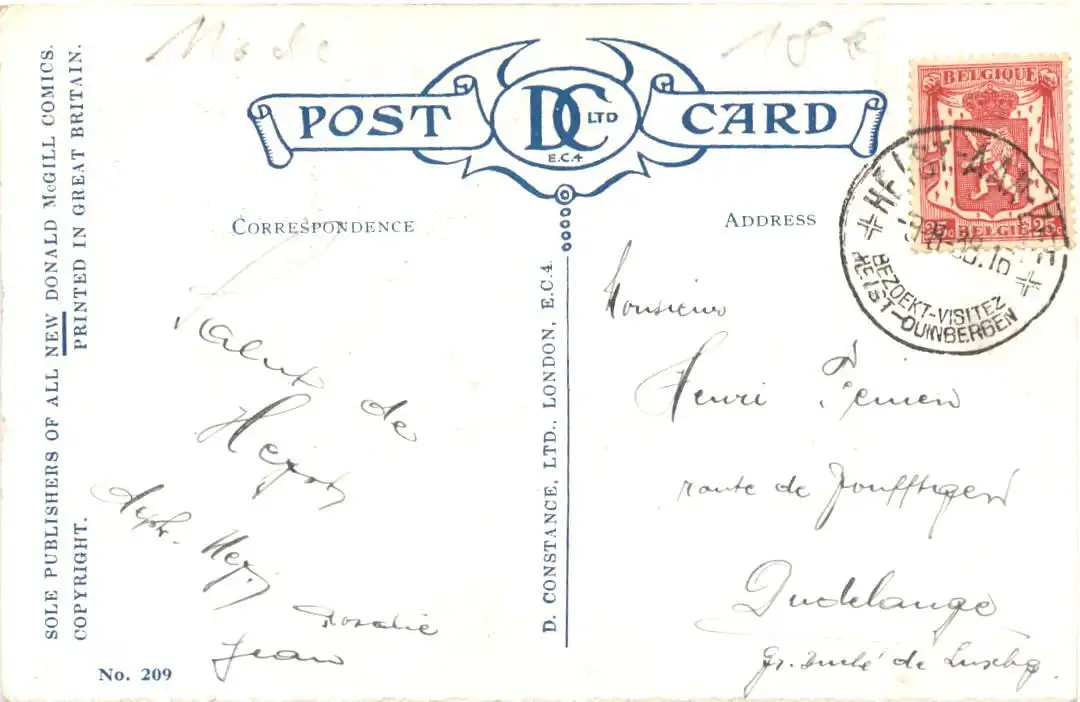 Mode 18 €
POST DC LTD E.C.4 CARD
BELGIQUE
25c BELGIË 25c
HEIST-AAN-ZEE
BEZOEKT-VISITEZ
HEIST-DUINBERGEN
CORRESPONDENCE
ADDRESS
SOLE PUBLISHERS OF ALL NEW DONALD McGILL COMICS.
PRINTED IN GREAT BRITAIN.
COPYRIGHT.
Salut de
Heyst
Rosalie
Jean
No. 209
D. CONSTANCE, LTD., LONDON, E.C.4.
Monsieur
Henri
route de
Dudelange
Gr. Duché de Luxbg.